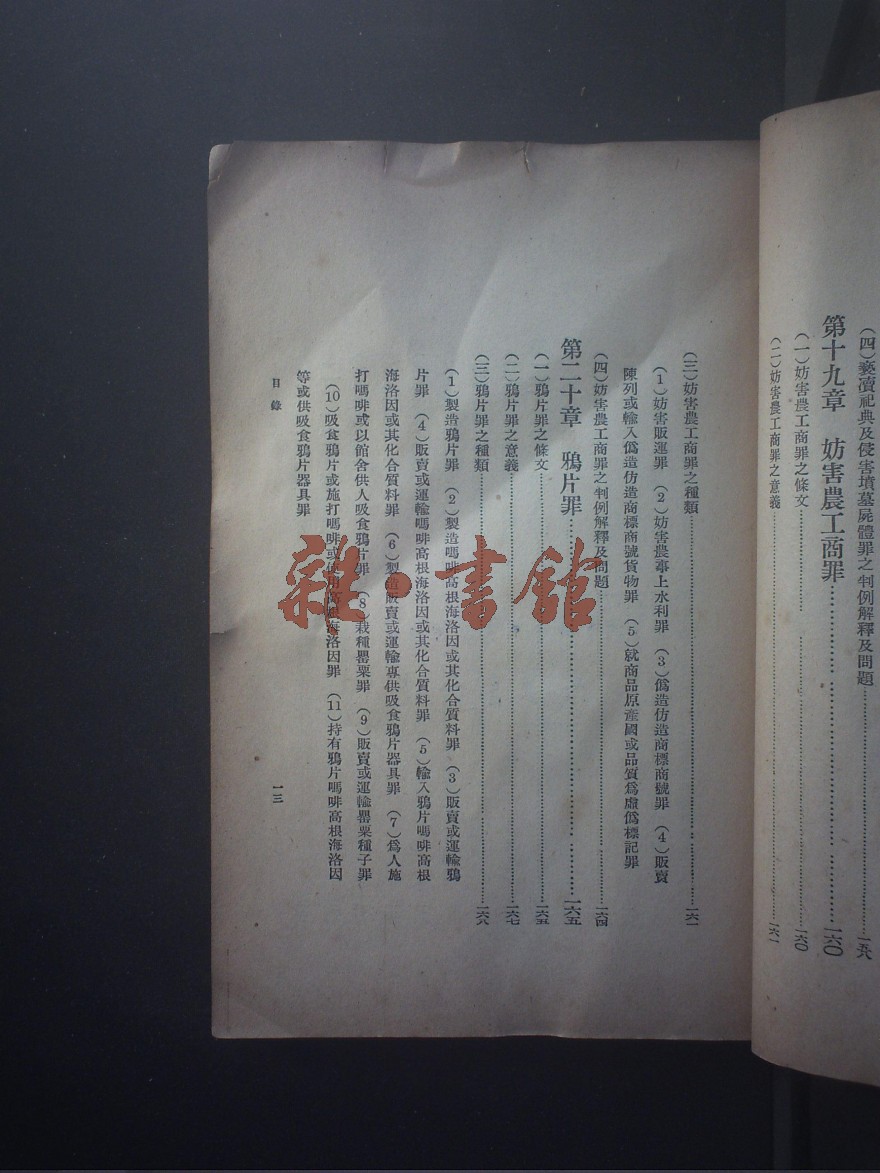 (四)褻瀆祀典及侵害墳墓屍體罪之判例解釋及問題……一五八
第十九章　妨害農工商罪……一六〇
(一)妨害農工商罪之條文……一六〇
(二)妨害農工商罪之意義……一六一
(三)妨害農工商罪之種類……一六一
(1)妨害販運罪　(2)妨害農事上水利罪　(3)僞造仿造商標商號罪　(4)販賣
陳列或輸入僞造仿造商標商號貨物罪　(5)就商品原產國或品質爲虛僞標記罪
(四)妨害農工商罪之判例解釋及問題……一六四
第二十章　鴉片罪……一六五
(一)鴉片罪之條文……一六五
(二)鴉片罪之意義……一六七
(三)鴉片罪之種類……一六八
(1)製造鴉片罪　(2)製造嗎啡高根海洛因或其化合質料罪　(3)販賣或運輸鴉
片罪　(4)販賣或運輸嗎啡高根海洛因或其化合質料罪　(5)輸入鴉片嗎啡高根
海洛因或其化合質料罪　(6)製造販賣或運輸專供吸食鴉片器具罪　(7)爲人施
打嗎啡或以館舍供人吸食鴉片罪　(8)栽種罌粟罪　(9)販賣或運輸罌粟種子罪
(10)吸食鴉片或施打嗎啡或使用高根海洛因罪　(11)持有鴉片嗎啡高根海洛因
等或供吸食鴉片器具罪
目錄
一三
雜·書館